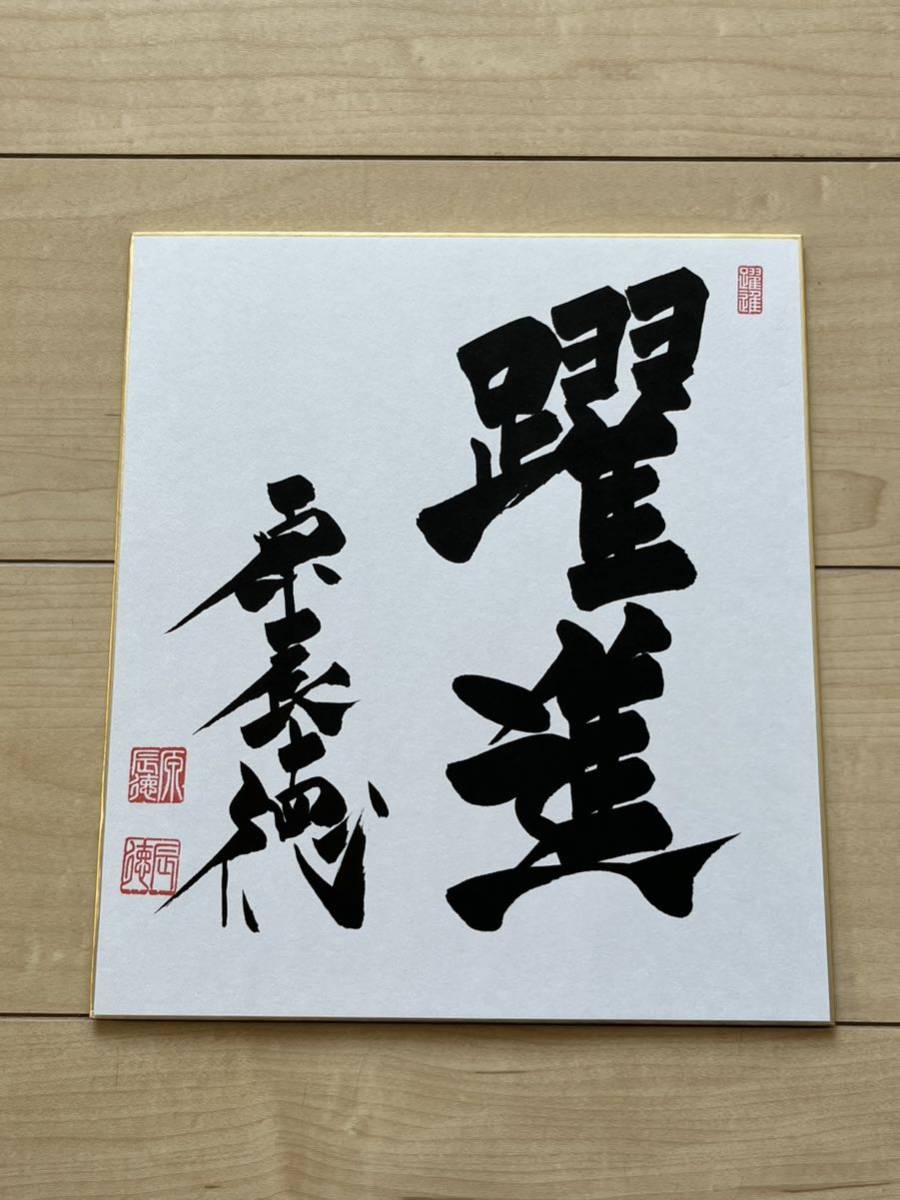 躍進
躍進
原辰徳
原辰徳
辰徳